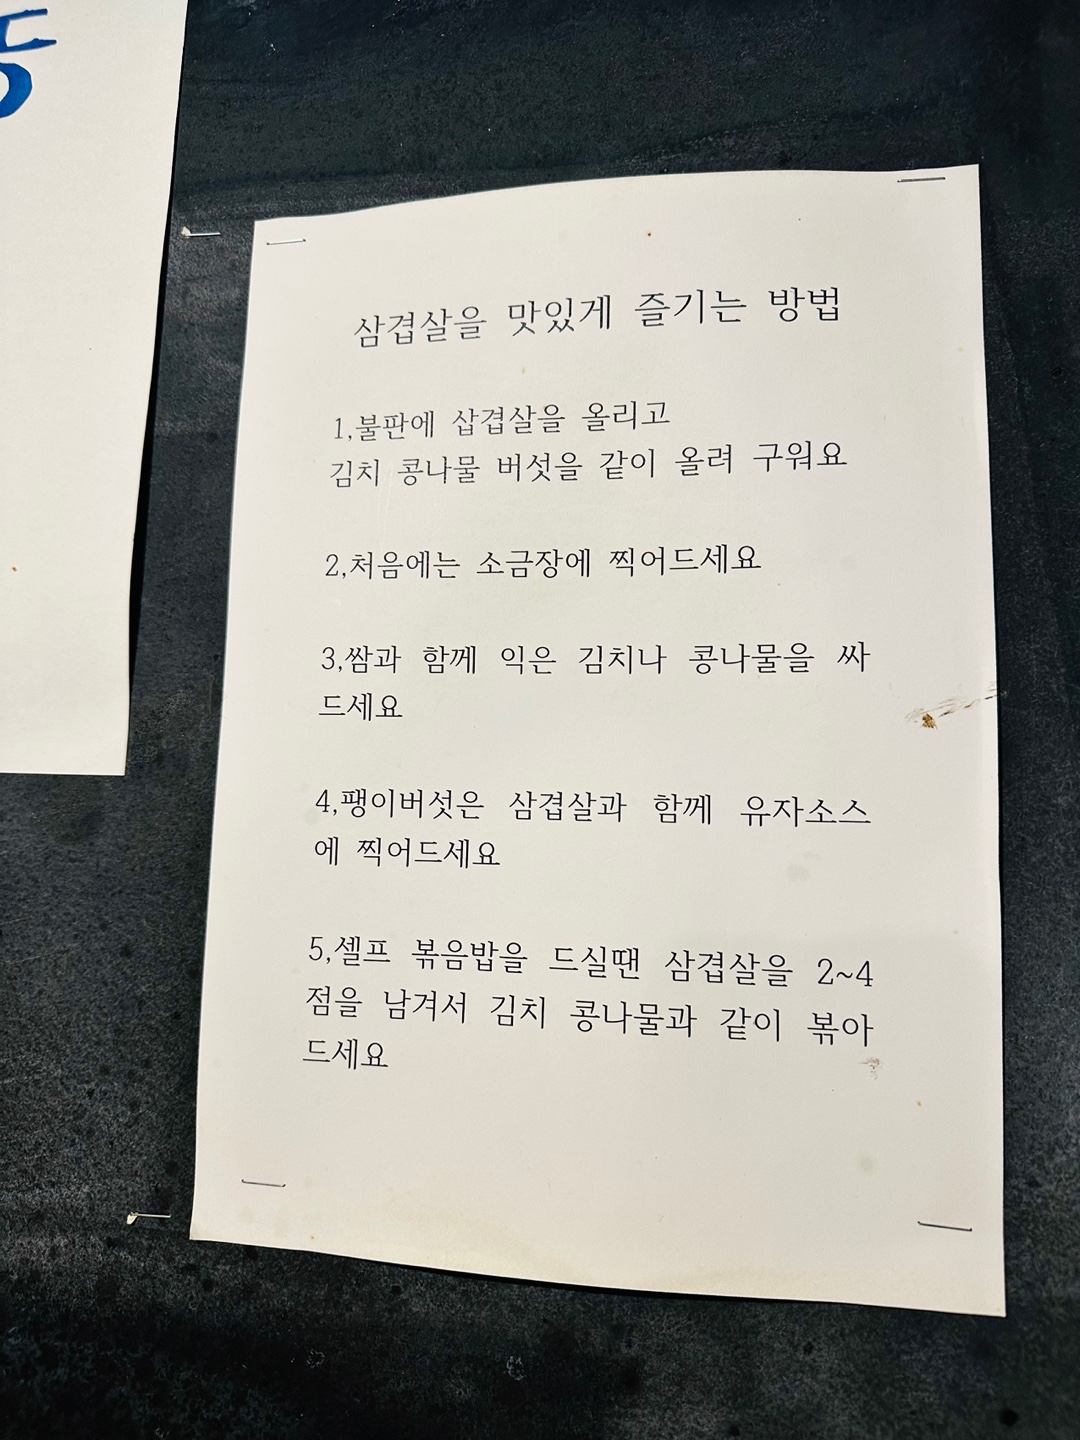 삼겹살을 맛있게 즐기는 방법
1,불판에 삽겹살을 올리고
김치 콩나물 버섯을 같이 올려 구워요
2,처음에는 소금장에 찍어드세요
3,쌈과 함께 익은 김치나 콩나물을 싸
드세요
4,팽이버섯은 삼겹살과 함께 유자소스
에 찍어드세요
5,셀프 볶음밥을 드실땐 삼겹살을 2~4
점을 남겨서 김치 콩나물과 같이 볶아
드세요